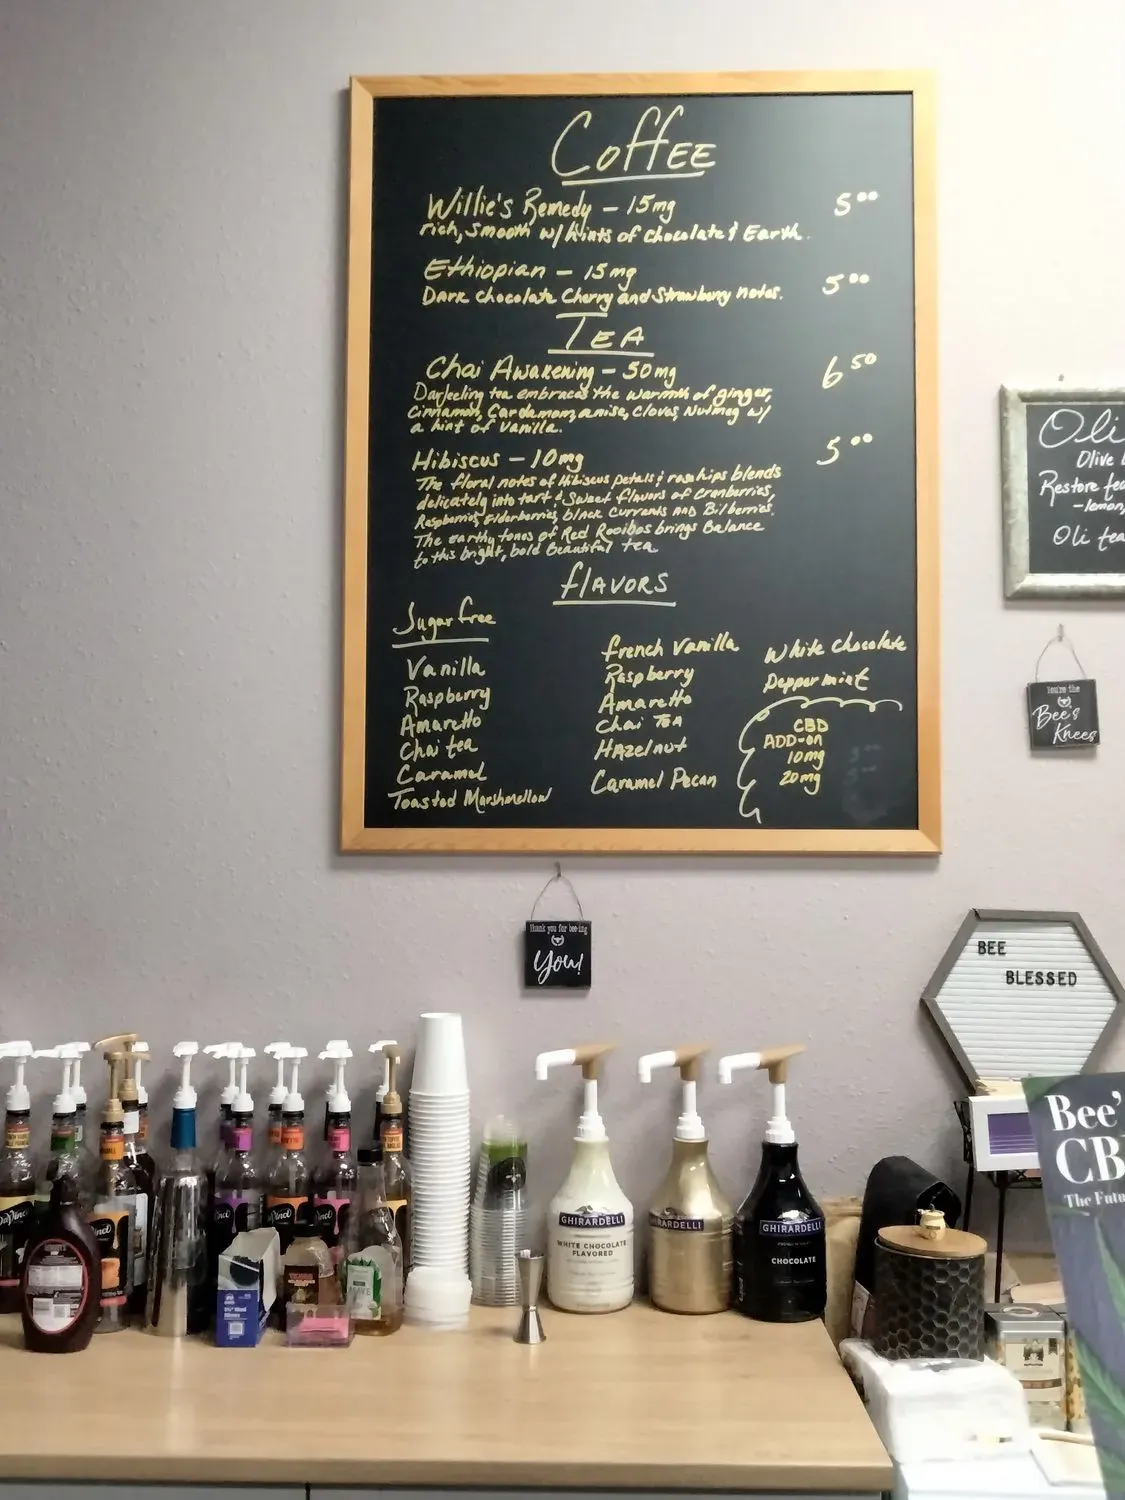 Coffee
Willie's Remedy – 15mg 5⁰⁰
rich, smooth w/ hints of chocolate & Earth.
Ethiopian – 15mg 5⁰⁰
Dark chocolate Cherry and Strawberry notes.
Tea
Chai Awakening – 50mg 6⁵⁰
Darjeeling tea embraces the warmth of ginger,
Cinnamon, Cardamom, anise, Cloves, Nutmeg w/
a hint of Vanilla.
Hibiscus – 10mg 5⁰⁰
The floral notes of Hibiscus petals & rosehips blends
delicately into tart & Sweet flavors of Cranberries,
Raspberries, Elderberries, black Currents AND Bilberries.
The earthy tones of Red Rooibos brings Balance
to this bright, bold Beautiful tea
flavors
Sugar free
Vanilla
Raspberry
Amaretto
Chai tea
Caramel
Toasted Marshmellow
French Vanilla
Raspberry
Amaretto
Chai Tea
Hazelnut
Caramel Pecan
White Chocolate
Peppermint
CBD
ADD-on
10mg
20mg
Oli
Olive
Restore
-lemon,
Oli tea
You're the
Bee's
Knees
Thank you for bee-ing
You!
BEE
BLESSED
Bee'
CB
The Futu
GHIRARDELLI
WHITE CHOCOLATE
FLAVORED
GHIRARDELLI
GHIRARDELLI
CHOCOLATE